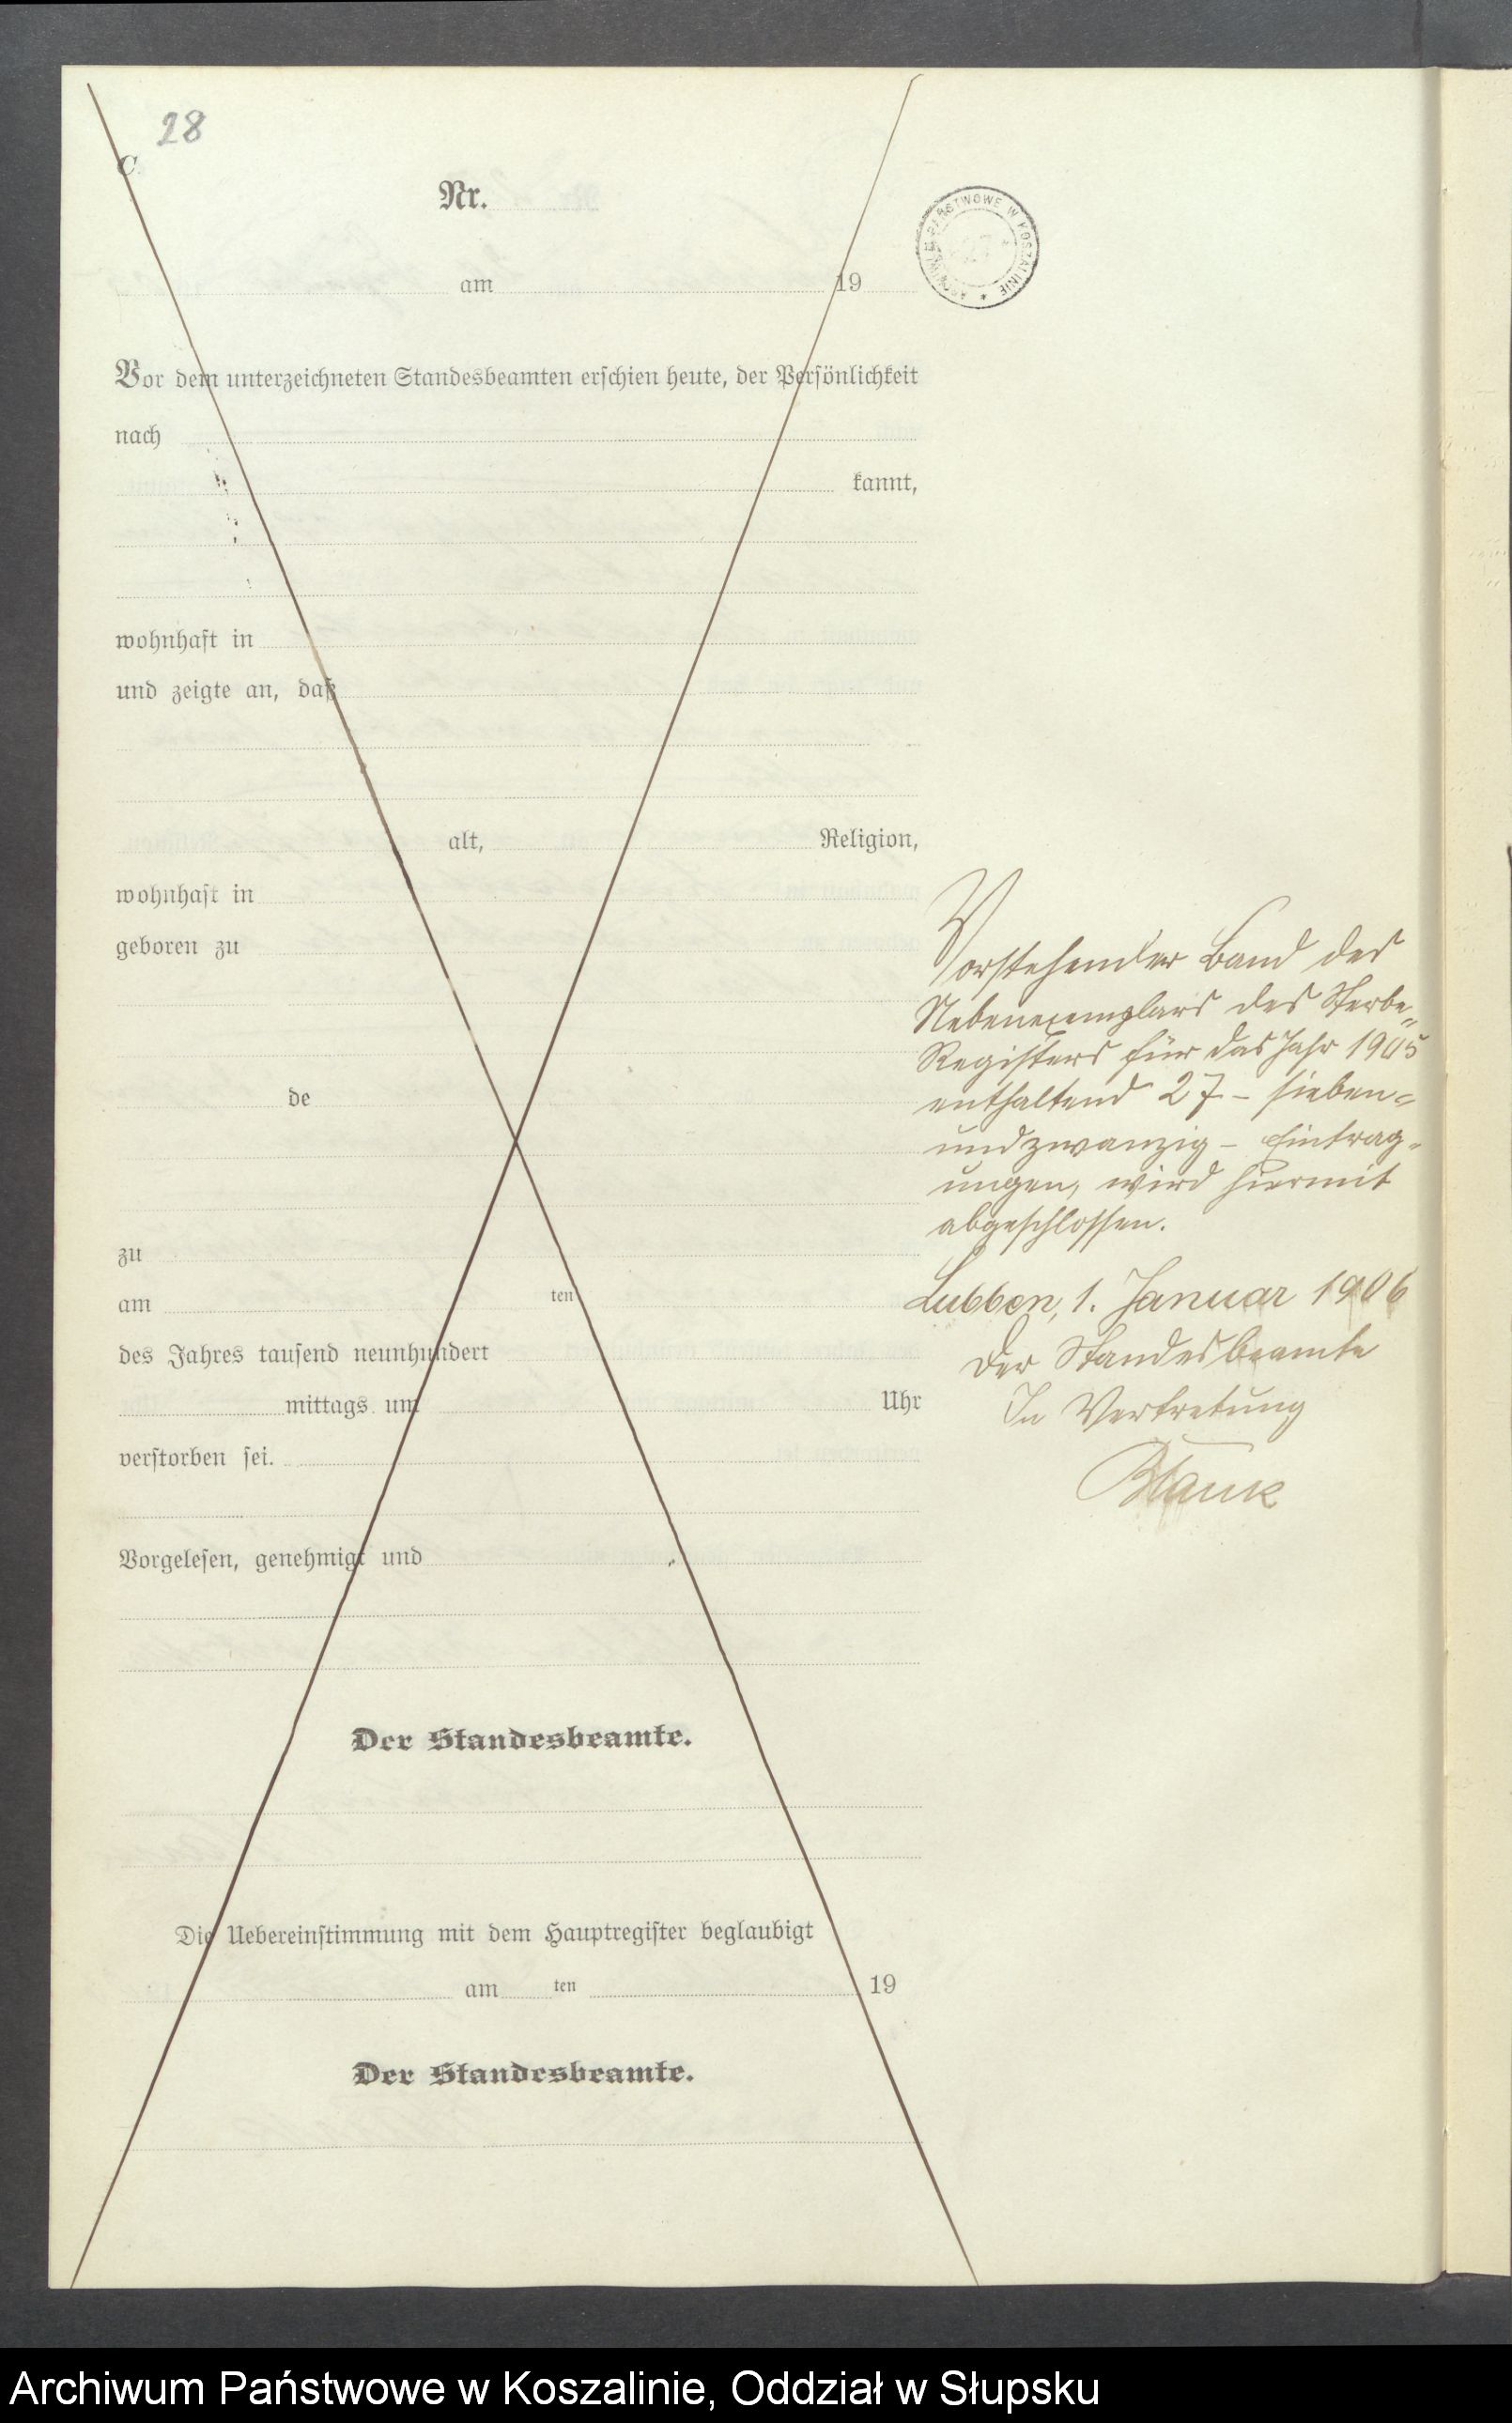 28
C.
Nr.
am 19
ARCHIWUM PAŃSTWOWE W KOSZALINIE *
Vor dem unterzeichneten Standesbeamten erschien heute, der Persönlichkeit
nach
kannt,
wohnhaft in
und zeigte an, daß
alt, Religion,
wohnhaft in
geboren zu
de
zu
am ten
des Jahres tausend neunhundert
mittags um Uhr
verstorben sei.
Vorgelesen, genehmigt und
Der Standesbeamte.
Die Uebereinstimmung mit dem Hauptregister beglaubigt
am ten 19
Der Standesbeamte.
Vorstehender Band des
Nebenexemplars des Sterbe-
Registers für das Jahr 1905
enthaltend 27 - sieben-
undzwanzig - Eintrag-
ungen, wird hiermit
abgeschlossen.
Lubben, 1. Januar 1906
Der Standesbeamte
In Vertretung
Blauk
Archiwum Państwowe w Koszalinie, Oddział w Słupsku